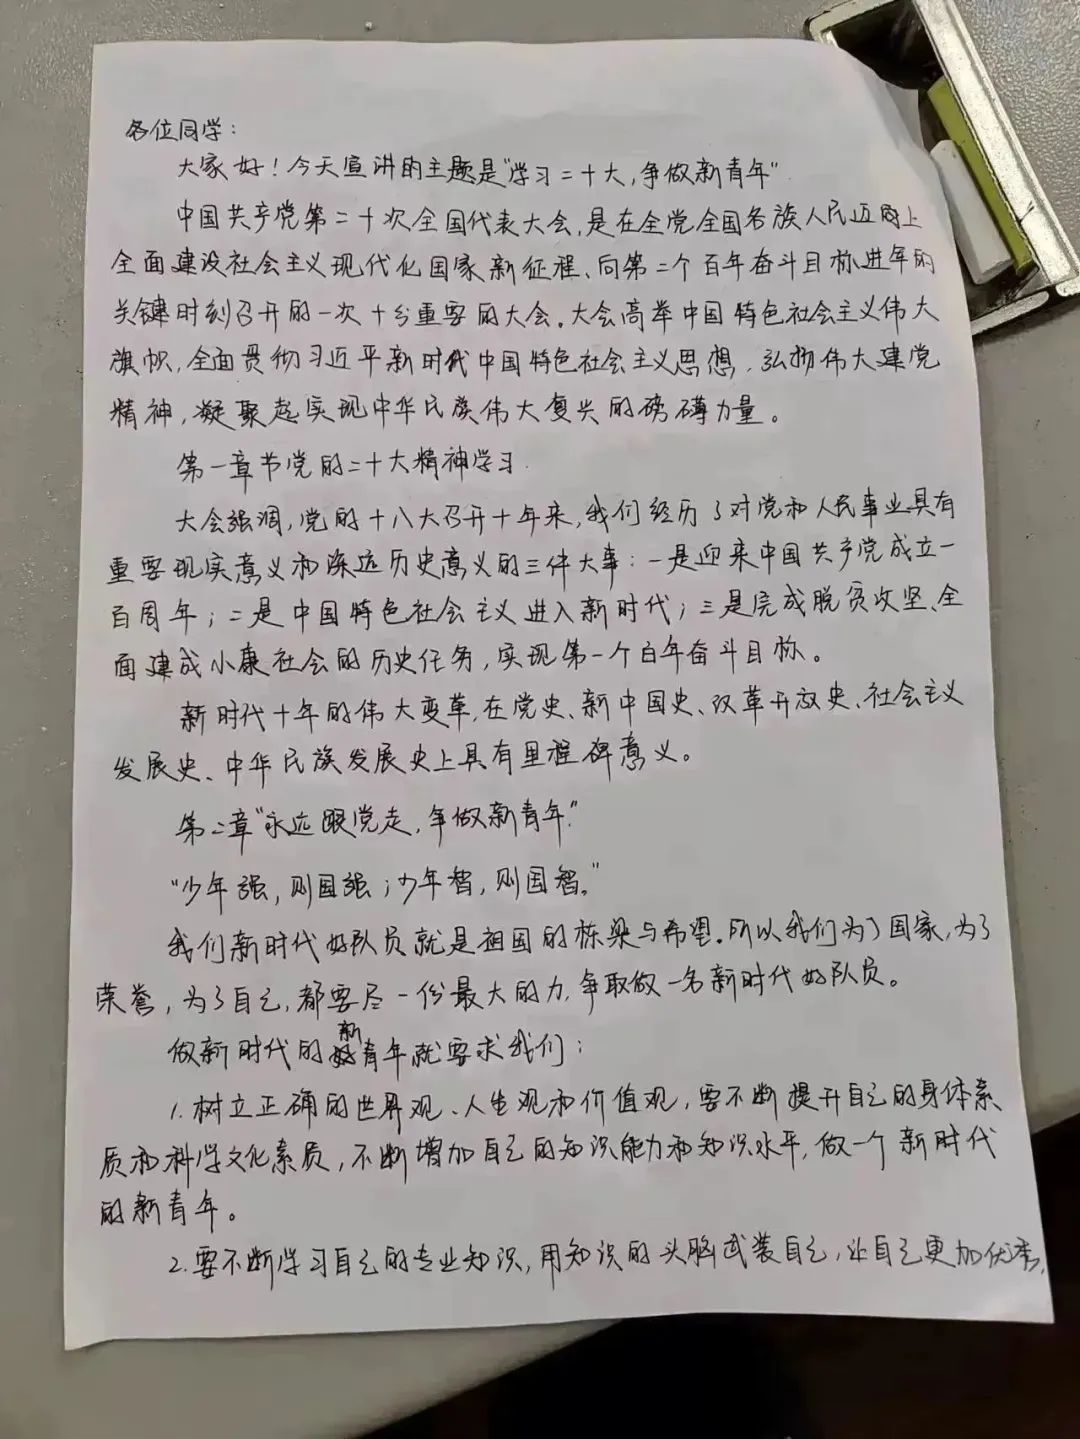 各位同学：
大家好！今天宣讲的主题是“学习二十大，争做新青年”
中国共产党第二十次全国代表大会，是在全党全国各族人民迈向上
全面建设社会主义现代化国家新征程、向第二个百年奋斗目标进军的
关键时刻召开的一次十分重要的大会。大会高举中国特色社会主义伟大
旗帜，全面贯彻习近平新时代中国特色社会主义思想，弘扬伟大建党
精神，凝聚起实现中华民族伟大复兴的磅礴力量。
第一章节党的二十大精神学习
大会强调，党的十八大召开十年来，我们经历了对党和人民事业具有
重要现实意义和深远历史意义的三件大事：一是迎来中国共产党成立一
百周年；二是中国特色社会主义进入新时代；三是完成脱贫攻坚、全
面建成小康社会的历史任务，实现第一个百年奋斗目标。
新时代十年的伟大变革，在党史、新中国史、改革开放史、社会主义
发展史、中华民族发展史上具有里程碑意义。
第二章“永远跟党走，争做新青年”
“少年强，则国强；少年智，则国智。”
我们新时代好队员就是祖国的栋梁与希望。所以我们为了国家，为了
荣誉，为了自己，都要尽一份最大的力，争取做一名新时代好队员。
做新时代的新青年就要求我们：
1. 树立正确的世界观、人生观和价值观，要不断提升自己的身体素
质和科学文化素质，不断增加自己的知识能力和知识水平，做一个新时代
的新青年。
2. 要不断学习自己的专业知识，用知识的头脑武装自己，让自己更加优秀，